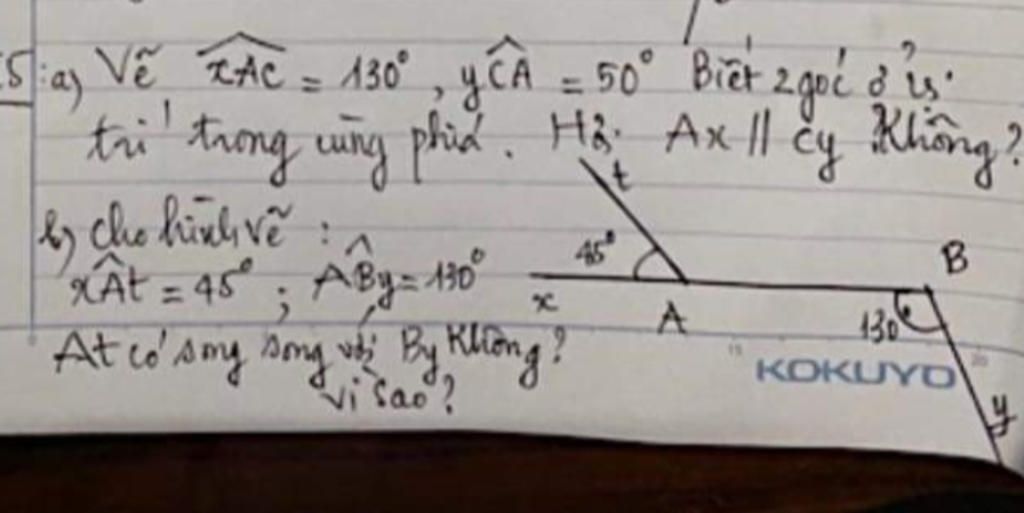 5: a) Vẽ xAC = 130°, yCA = 50° Biết 2 góc ở vị
trí trong cùng phía. Hỏi Ax // Cy không?
t
b) Cho hình vẽ:
45°
B
xAt = 45°; ABy = 130°
x
A
130
At có song song với By không?
KOKUYO
Vì sao?
y